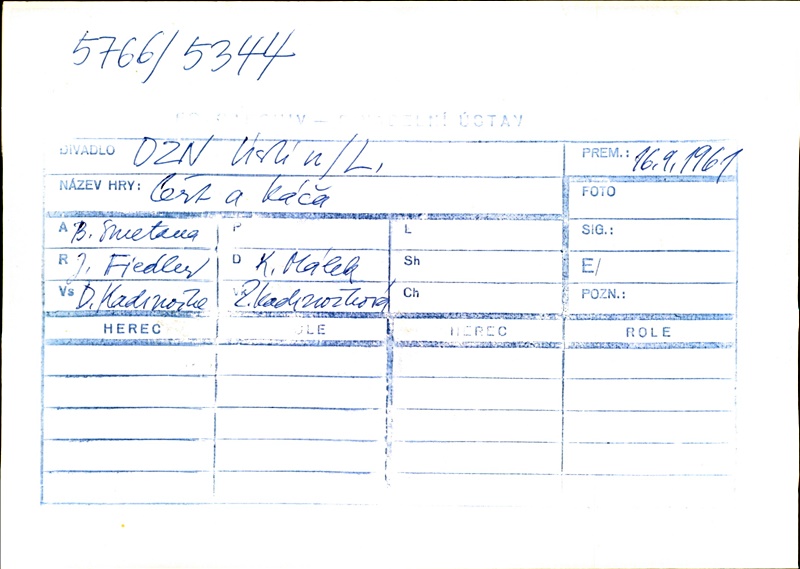 5766/5344
ÚSTAV
DIVADLO OZN Ústí n/L. PREM.: 16.9.1961
NÁZEV HRY: Čert a Káča FOTO
A B. Smetana P L SIG.:
R J. Fiedler D K. Málek Sh E/
Vs D. Kadrnožka Z. Kadrnožková Ch POZN.:
HEREC HEREC ROLE